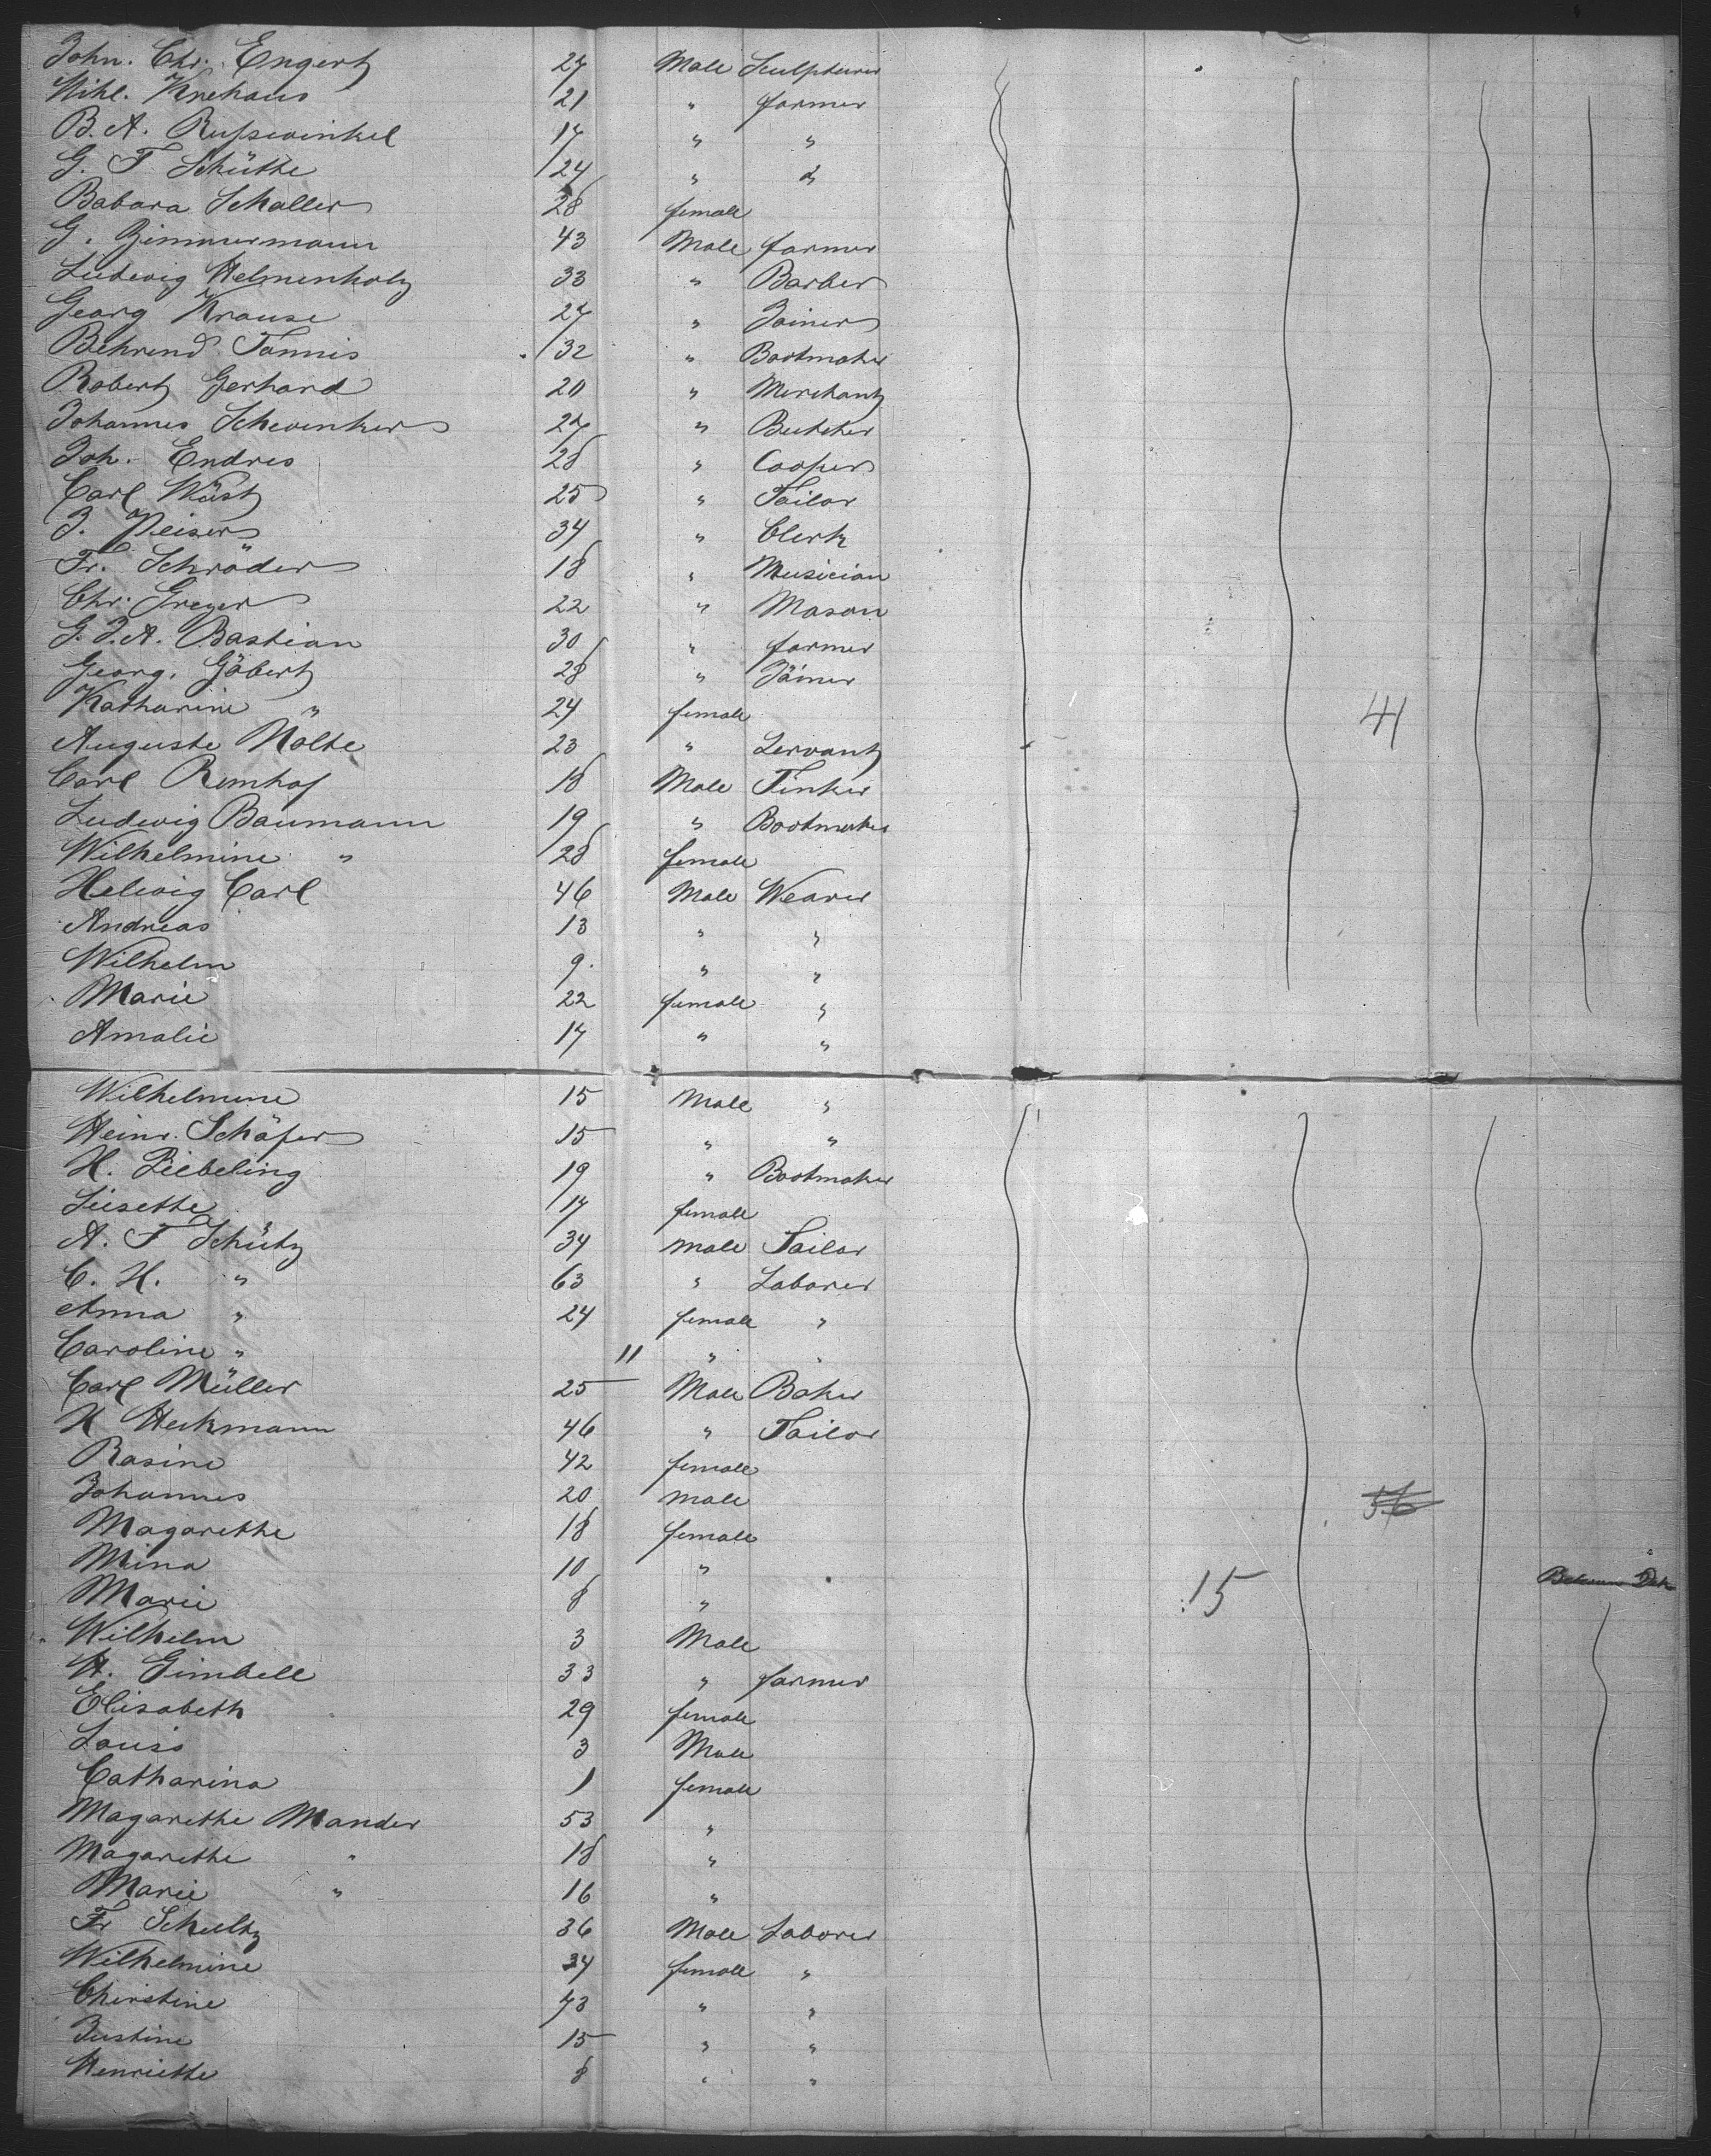 John. Chr. Engert 27 Male Sculpturer
Wihl. Krehaus 21 " farmer
B. A. Rußwinkel 17 " "
G. F. Schütte 24 " "
Babara Schaller 28 female
G. Zimmermann 43 Male farmer
Ludwig Helmenholz 33 " Barber
Georg Krause 27 " Joiner
Behrend Tannis 32 " Bootmaker
Robert Gerhard 20 " Merchant
Johannes Schwenker 27 " Butcher
Joh. Endres 28 " Cooper
Carl Wüst 25 " Tailor
J. Peiser 34 " Clerk
Fr. Schröder 18 " Musician
Chr. Greger 22 " Mason
G. J. A. Bastian 30 " farmer
Georg. Göbert 28 " Joiner
Katharine " 24 female 41
Auguste Nolte 23 " Servant
Carl Remhof 18 Male Tinker
Ludwig Baumann 19 " Bootmaker
Wilhelmine " 28 female
Helwig Carl 46 Male Weaver
Andreas 13 " "
Wilhelm 9. " "
Marie 22 female "
Amalie 17 " "
Wilhelmine 15 Male "
Heinr. Schäfer 15 " "
H. Liebeling 19 " Bootmaker
Lisette 17 female
A. F Schütz 34 male Tailor
C. H. " 63 " Laborer
Anna " 24 female "
Caroline " 11 " "
Carl Müller 25 Male Baker
H Heckmann 46 " Tailor
Rosine 42 female
Johannes 20 male 56
Magarethe 18 female
Mina 10 "
Marie 8 " 15
Wilhelm 3 Male
H. Gimbell 33 " farmer
Elisabeth 29 female
Louis 3 Male
Catharina 1 female
Magarethe Mander 53 "
Magarethe " 18 "
Marie " 16 "
Fr Schultz 36 Male Laborer
Wilhelmine 34 female "
Chirstine 73 " "
Justine 15 " "
Henriette 8 " "